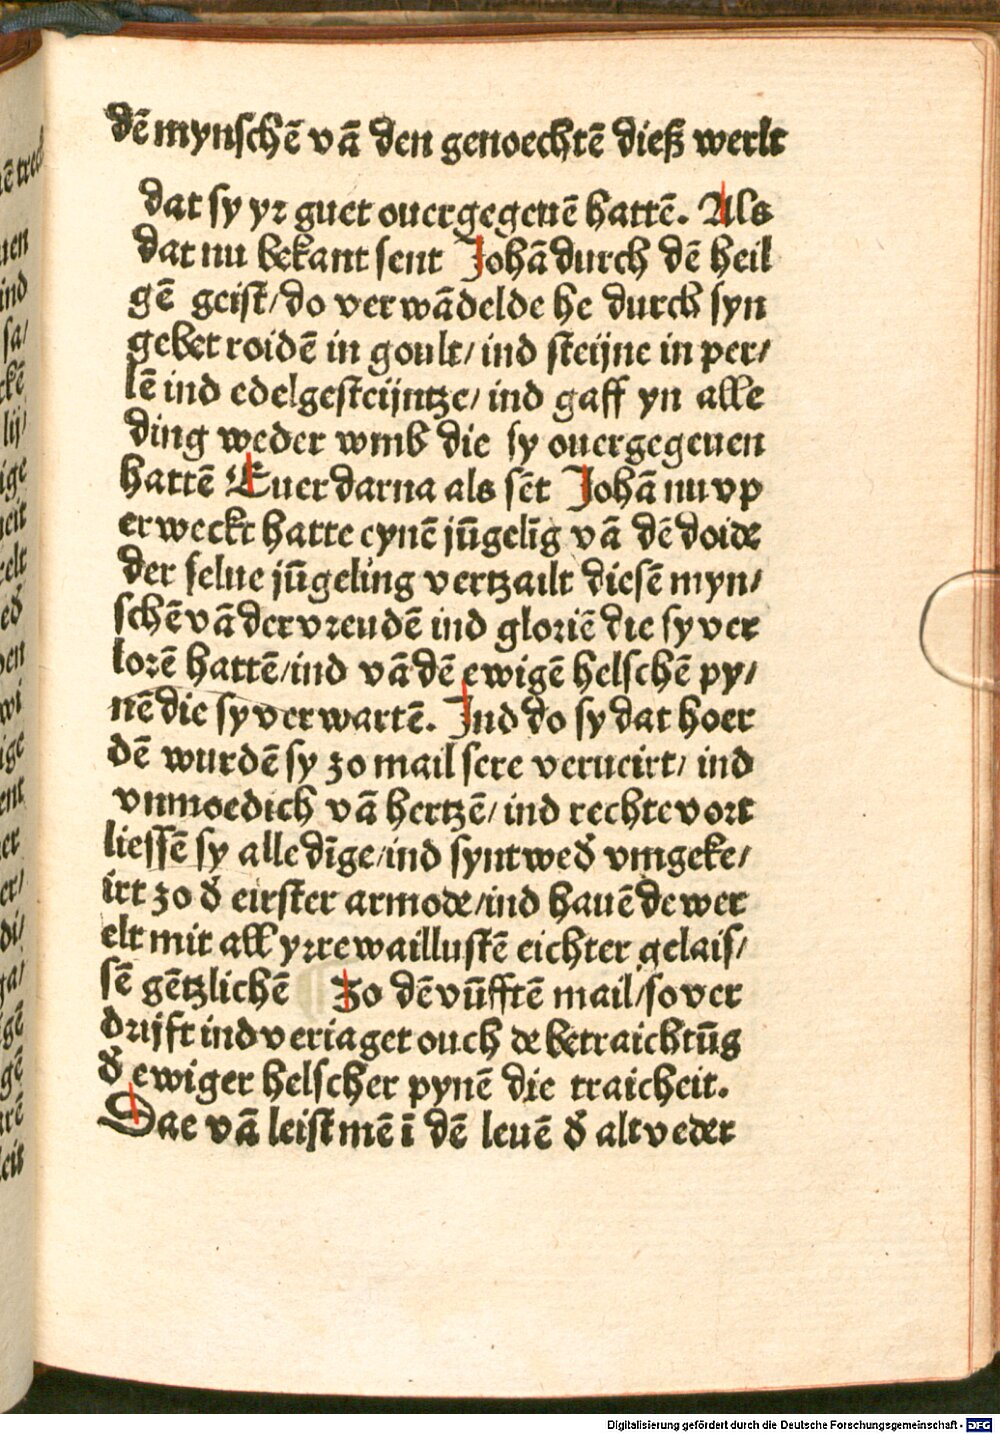 dē mynschē vā den genoechtē dieß werlt
dat sy yr guet ouergegeuē hattē. Als
dat nu bekant sent Johā durch dē heil
gē geist/ do verwādelde he durch syn
gebet roidē in goult/ ind steijne in per/
lē ind edelgesteijntze/ ind gaff yn alle
ding weder wmb die sy ouergegeuen
hattē Euer darna als sēt Johā nu vp
erweckt hatte eynē jūgelīg vā dē doidē
der selue jūgeling vertzailt diesē myn/
schē vā der vreudē ind gloriē die sy ver
lorē hattē/ ind vā dē ewigē helschē py/
nē die sy verwartē. Ind do sy dat hoer
dē wurdē sy zo mail sere verueirt/ ind
vnmoedich vā hertzē/ ind rechtevort
liessē sy alle dīge/ ind synt wed̄ vmgeke/
irt zo d̄ eirster armode/ ind hauē de wer
elt mit all yrre waillustē eichter gelais/
sē gētzlichē Zo dē vūfftē mail/ so ver
drijft ind veriaget ouch de betraichtūg
d̄ ewiger helscher pynē die traicheit.
Dae vā leist mē ī dē leuē d̄ altveder
Digitalisierung gefördert durch die Deutsche Forschungsgemeinschaft - DFG